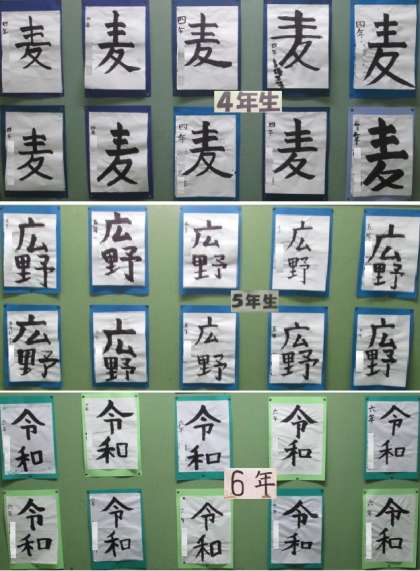 麦 麦 麦 麦 麦
4年生
麦 麦 麦 麦 麦
広野 広野 広野 広野 広野
5年生
広野 広野 広野 広野 広野
令和 令和 令和 令和 令和
6年
令和 令和 令和 令和 令和